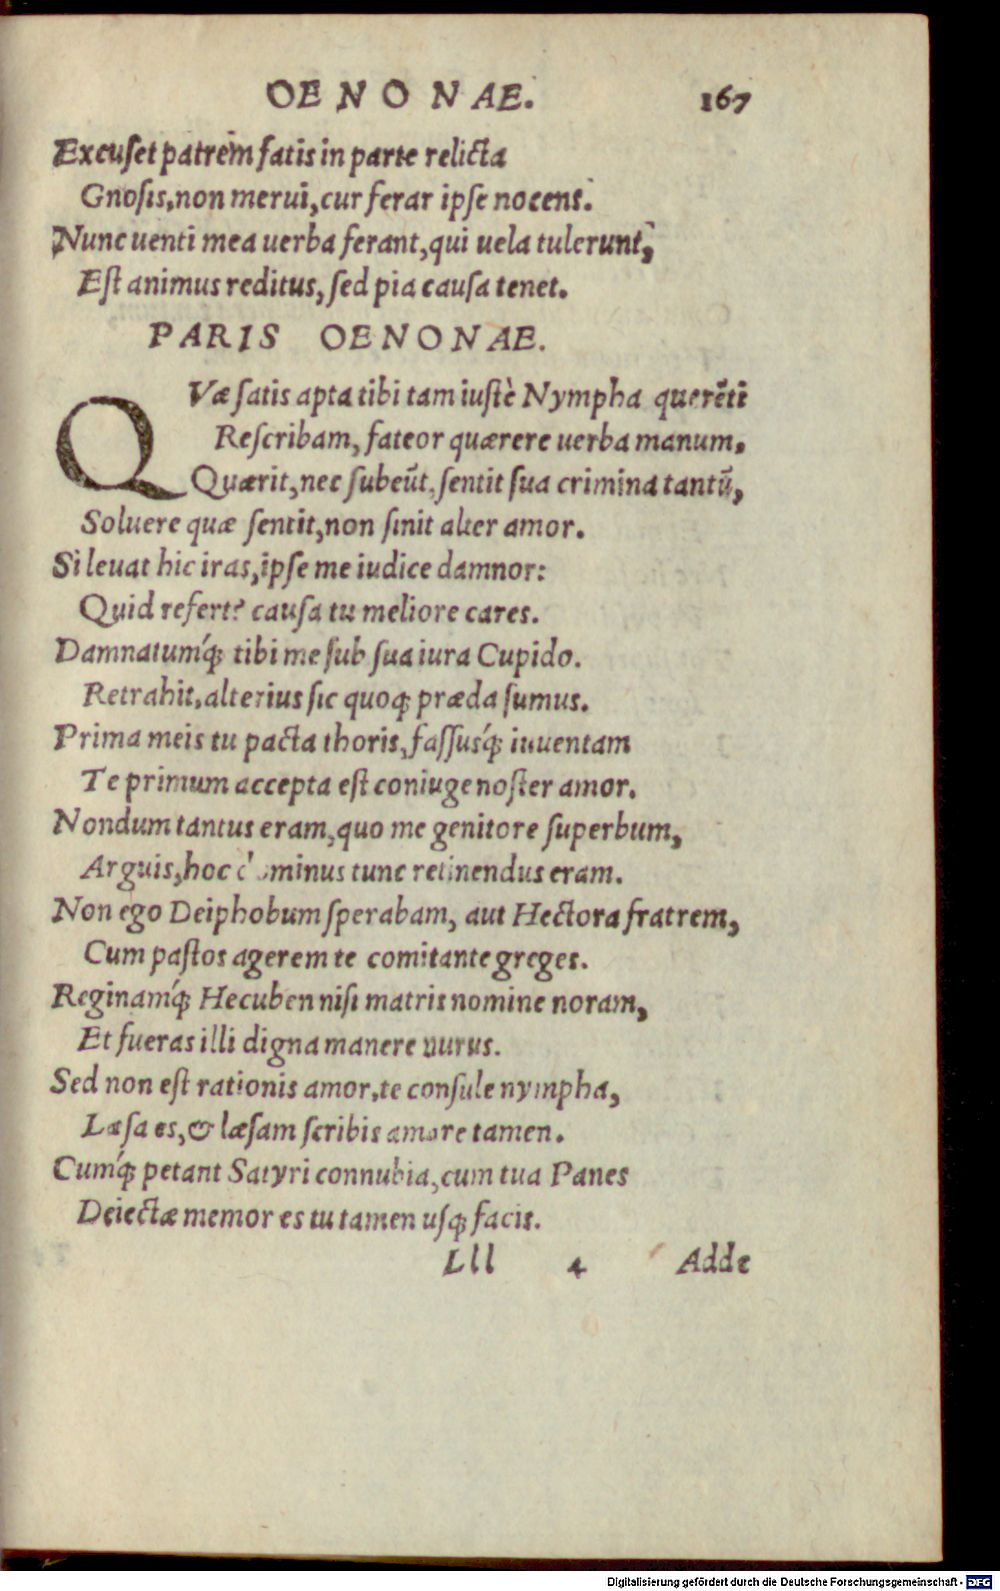 OENONAE. 167
Excuset patrem fatis in parte relicta
Gnosis, non merui, cur ferar ipse nocens.
Nunc uenti mea uerba ferant, qui uela tulerunt,
Est animus reditus, sed pia causa tenet.
PARIS OENONAE.
QVæ satis apta tibi tam iustè Nympha querēti
Rescribam, fateor quærere uerba manum.
Quærit, nec subeūt, sentit sua crimina tantū,
Soluere quæ sentit, non sinit alter amor.
Si leuat hic iras, ipse me iudice damnor:
Quid refert? causa tu meliore cares.
Damnatumq́ꝫ tibi me sub sua iura Cupido.
Retrahit, alterius sic quoqꝫ præda sumus.
Prima meis tu pacta thoris, fassusq́ꝫ iuuentam
Te primum accepta est coniuge noster amor.
Nondum tantus eram, quo me genitore superbum,
Arguis, hoc minus tunc retinendus eram.
Non ego Deiphobum sperabam, aut Hectora fratrem,
Cum pastos agerem te comitante greges.
Reginamq́ꝫ Hecuben nisi matris nomine noram,
Et fueras illi digna manere nurus.
Sed non est rationis amor, te consule nympha,
Læsa es, & læsam scribis amare tamen.
Cumq́ꝫ petant Satyri connubia, cum tua Panes
Deiectæ memor es tu tamen usqꝫ facis.
Lll 4 Adde
Digitalisierung gefördert durch die Deutsche Forschungsgemeinschaft - DFG